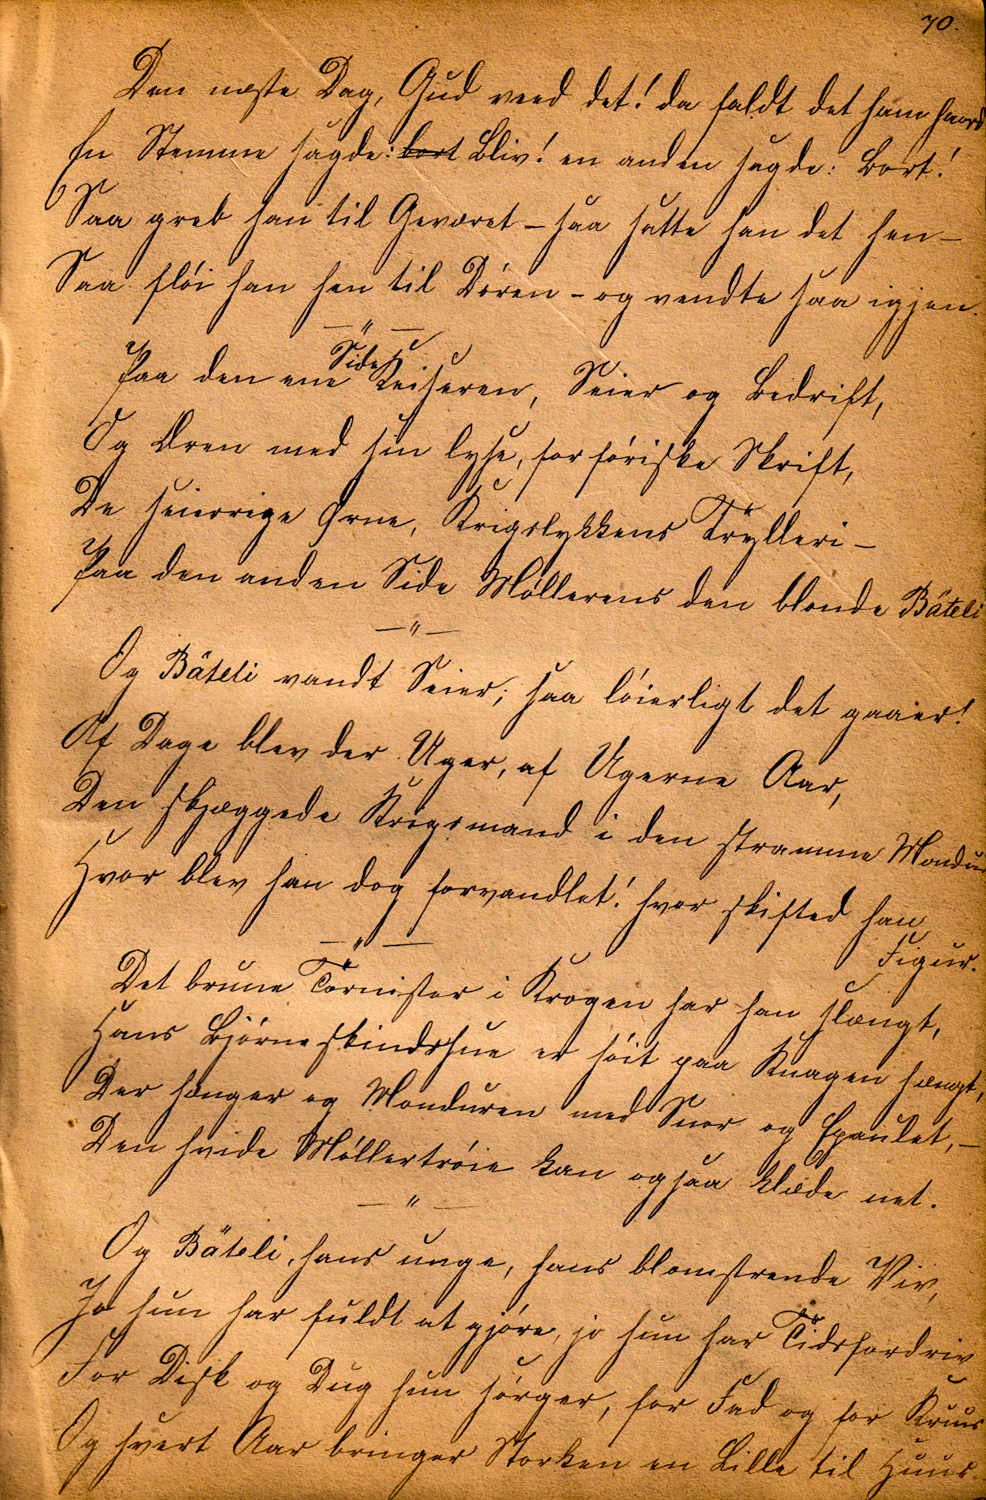 70.
Den næste Dag, Gud veed det! da faldt det ham haard
En Stemme sagde: bort Bliv! en anden sagde: Bort!
Saa greb han til Geværet – saa satte han det hen –
Saa fløi han hen til Døren – og vendte saa igjen.
— " —
Paa den ene Side Keiseren, Seier og Bedrift,
Og Æren med sin lyse, forføriske Skrift,
De seierrige Ørne, Krigslykkens Trylleri –
Paa den anden Side Møllerens den blonde Bäteli
— " —
Og Bäteli vandt Seier; saa løierligt det gaaer!
Af Dage blev der Uger, af Ugerne Aar,
Den skjæggede Krigsmand i den stramme Mondur
Hvor blev han dog forvandlet! hvor skifted han
Figur.
— " —
Det brune Tornister i Krogen har han slængt,
Hans Bjørneskindshue er høit paa Knagen hængt,
Der hænger og Monduren med Snor og Epaulet, –
Den hvide Møllertrøie kan ogsaa klæde net.
— " —
Og Bäteli, hans unge, hans blomstrende Viv,
Jo hun har fuldt at gjøre, jo hun har Tidsfordriv
For Disk og Dug hun sørger, for Fad og for Kruus
Og hvert Aar bringer Storken en Lille til Huus